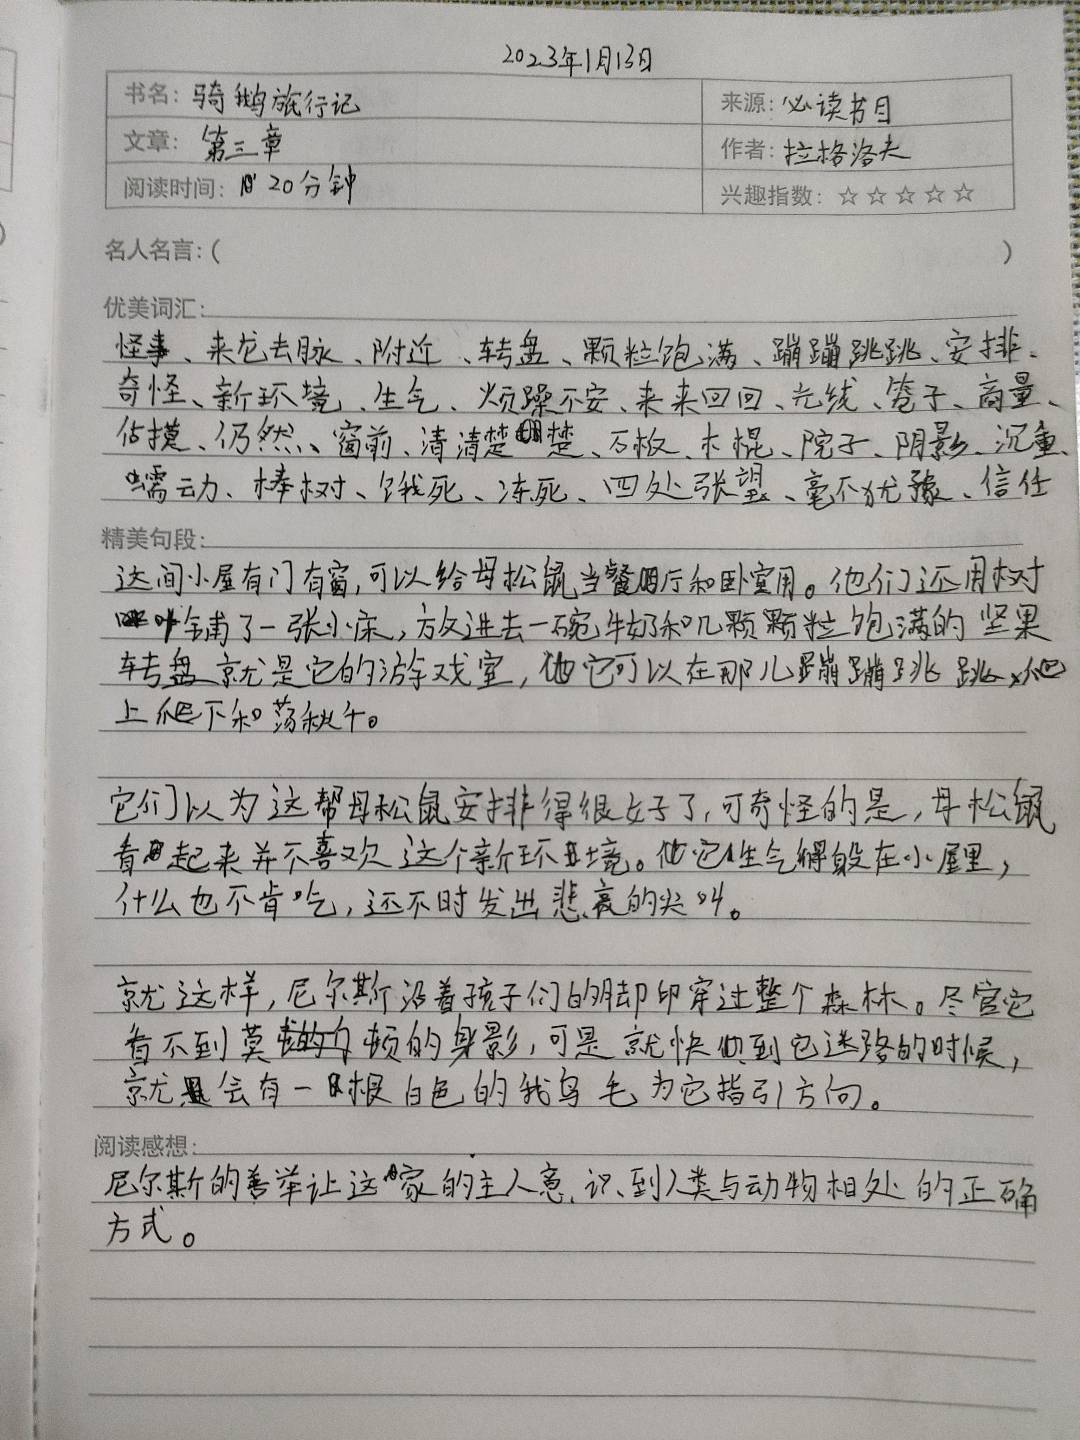 2023年1月13日
书名: 骑鹅旅行记 来源: 必读书目
文章: 第三章 作者: 拉格洛夫
阅读时间: 20分钟 兴趣指数: ☆☆☆☆☆
名人名言:( )
优美词汇:
怪事、来龙去脉、附近、转盘、颗粒饱满、蹦蹦跳跳、安排、
奇怪、新环境、生气、烦躁不安、来来回回、光线、笼子、商量、
估摸、仍然、窗前、清清楚楚、石板、木棍、院子、阴影、沉重、
蠕动、棒树、饿死、冻死、四处张望、毫不犹豫、信任
精美句段:
这间小屋有门有窗,可以给母松鼠当餐厅和卧室用。他们还用树
叶铺了一张小床,放进去一碗牛奶和几颗颗粒饱满的坚果
转盘就是它的游戏室,它可以在那儿蹦蹦跳跳、爬
上爬下和荡秋千。
它们以为这帮母松鼠安排得很好了,可奇怪的是,母松鼠
看起来并不喜欢这个新环境。它生气得躲在小屋里,
什么也不肯吃,还不时发出悲哀的尖叫。
就这样,尼尔斯沿着孩子们的脚印穿过整个森林。尽管它
看不到莫顿的身影,可是就快到它迷路的时候,
就会有一根白色的鹅毛为它指引方向。
阅读感想:
尼尔斯的善举让这家的主人意识到人类与动物相处的正确
方式。